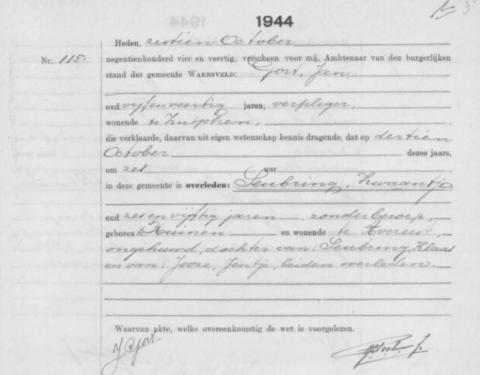 1944
Heden, zestien October
Nr. 115.
negentienhonderd vier en veertig, verscheen voor mij, Ambtenaar van den burgerlijken
stand der gemeente WARNSVELD: Gort, Jan,
oud vijfenveertig jaren, verpleger,
wonende te Zutphen,
die verklaarde, daarvan uit eigen wetenschap kennis dragende, dat op dertien
October dezes jaars,
om zes uur
in deze gemeente is overleden: Leubring, Zwaantje
oud zesenvijftig jaren zonder beroep,
geboren te Kuinre en wonende te
ongehuwd, dochter van: Leubring, Klaas
en van: Jentje, beiden overleden.
Waarvan akte, welke overeenkomstig de wet is voorgelezen.
J Gort